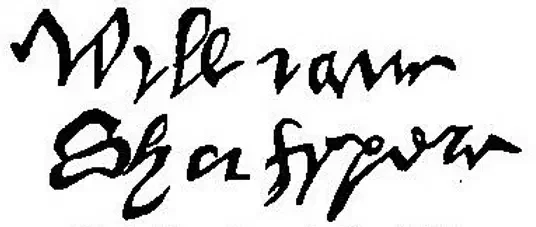 William
Shaksper